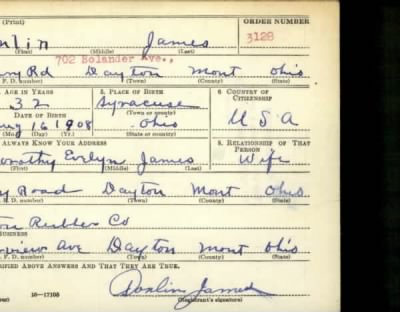 (Print) ORDER NUMBER
James 3128
(First) (Middle) (Last)
702 Bolander Ave.,
Rd Dayton Mont Ohio
F. D. number) (Town) (County) (State)
AGE IN YEARS 5. PLACE OF BIRTH 6. COUNTRY OF CITIZENSHIP
32 Syracuse
(Town or county)
DATE OF BIRTH U S A
16 1908 Ohio
(Mo.) (Day) (Yr.) (State or country)
ALWAYS KNOW YOUR ADDRESS 8. RELATIONSHIP OF THAT PERSON
Dorothy Evelyn James Wife
(First) (Middle) (Last)
Road Dayton Mont Ohio
F. D. number) (Town) (County) (State)
Rubber Co
BUSINESS
view Ave Dayton Mont Ohio
F. D. number) (Town) (County) (State)
VERIFIED ABOVE ANSWERS AND THAT THEY ARE TRUE.
James
16—17105 (Registrant's signature)